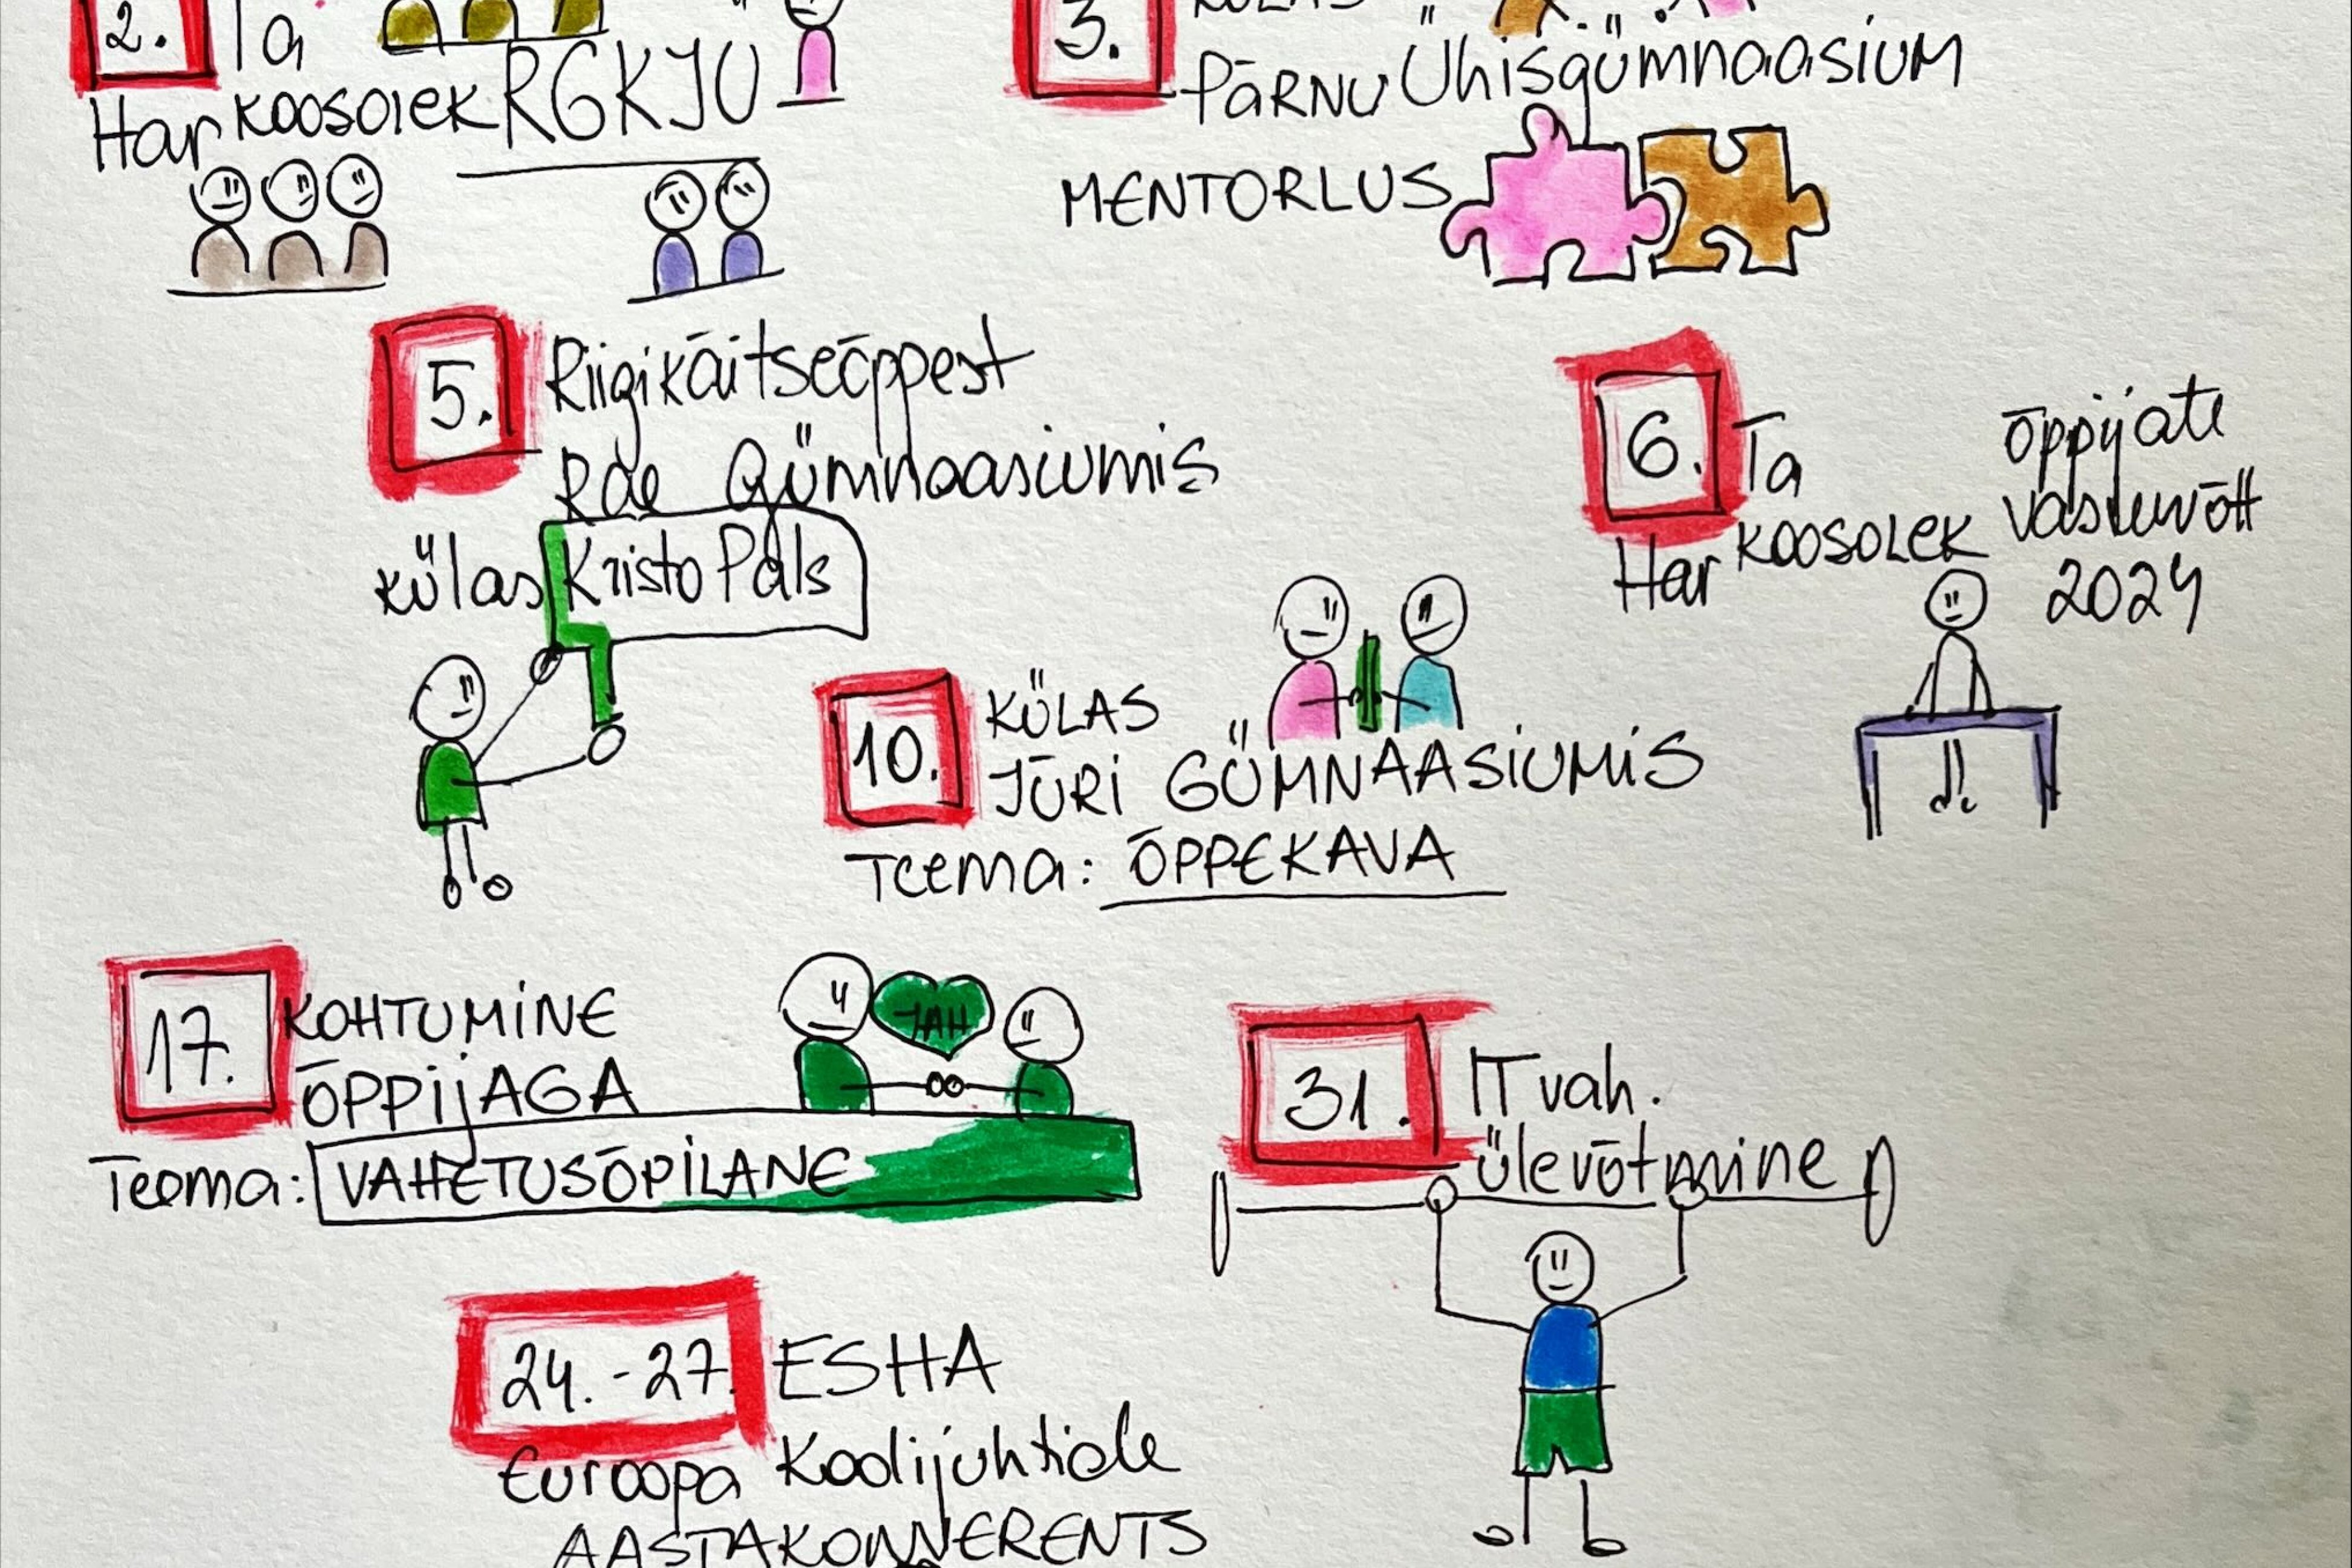 2. Ta
Har koosolek RGKJÜ
3. KÜLAS
PÄRNU Ühisgümnaasium
MENTORLUS
5. Riigikaitseõppest
Rae Gümnaasiumis
külas Kristo Pals
6. Ta
Har koosolek
õppijate
vastuvõtt
2024
10. KÜLAS
JÜRI GÜMNAASIUMIS
Teema: ÕPPEKAVA
17. KOHTUMINE
ÕPPIJAGA
JAH
Teema: VAHETUSÕPILANE
31. IT vah.
ülevõtmine
24.-27. ESHA
Euroopa Koolijuhtide
AASTAKONVERENTS